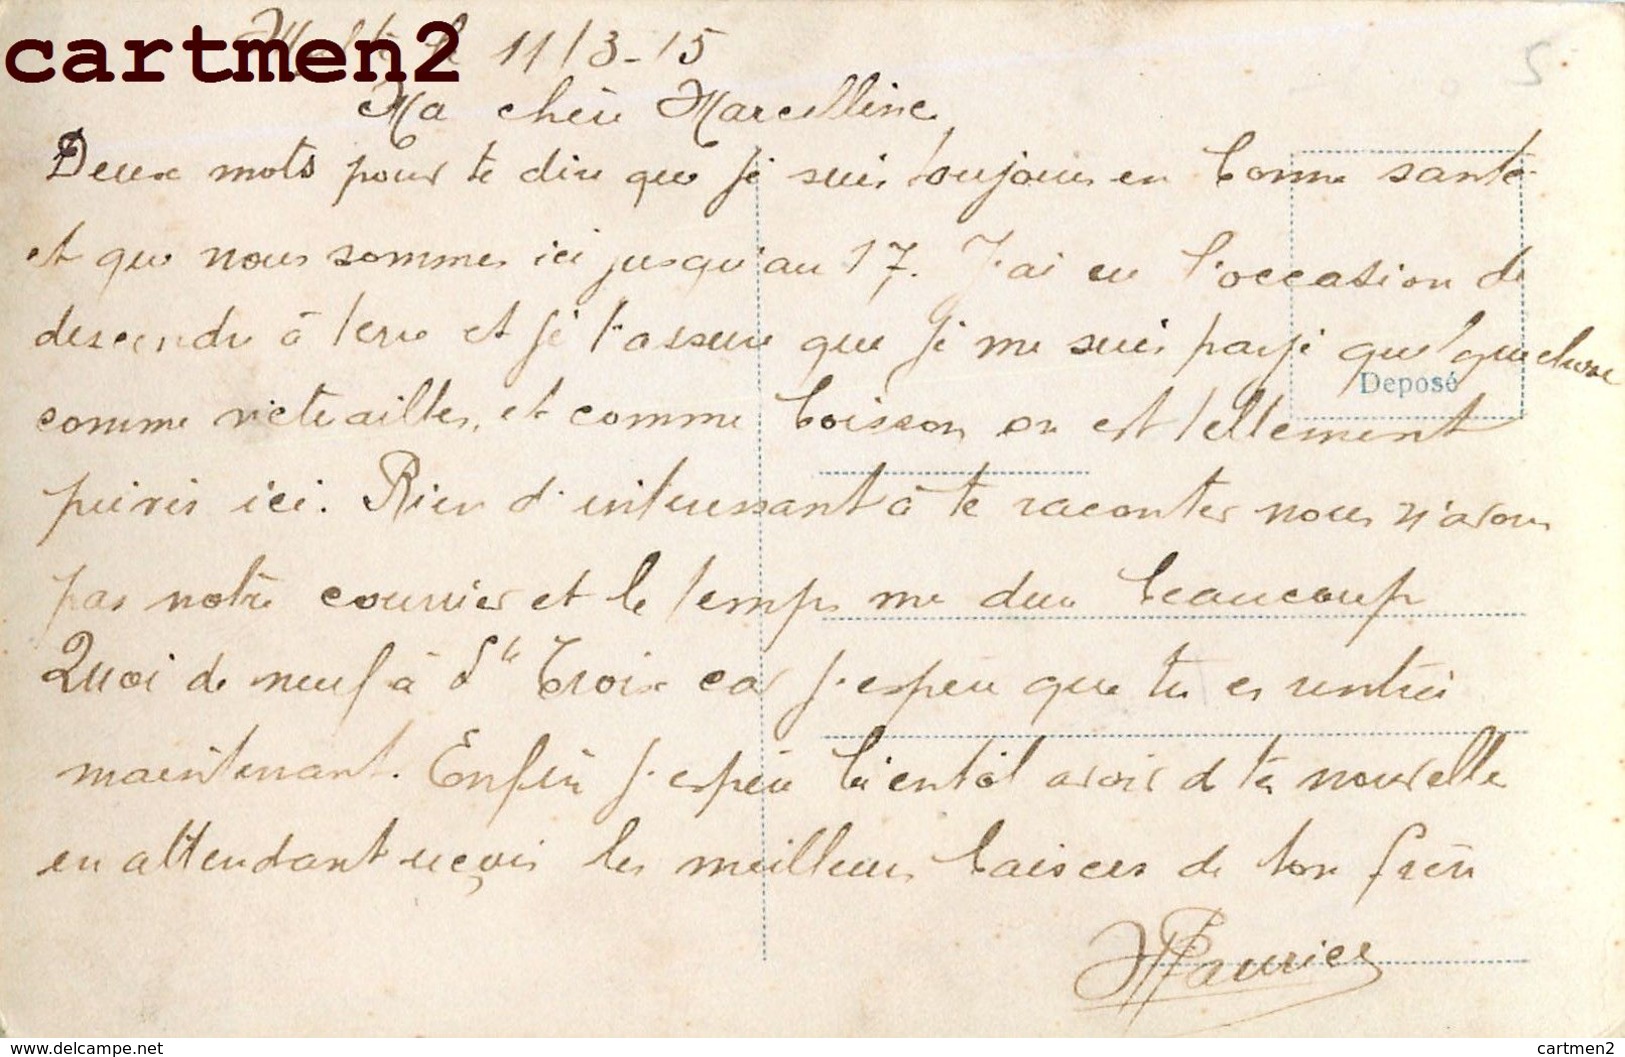 cartmen2
Malte le 11/3-15
Ma chère Marcelline
Deux mots pour te dire que je suis toujours en bonne santé
et que nous sommes ici jusqu'au 17. J'ai eu l'occasion de
descendre à terre et je t'assure que je me suis payé quelque chose
comme victuailles, et comme boisson on est tellement
privés ici. Rien d'intéressant à te raconter nous n'avons
pas notre courrier et le temps me dure beaucoup
Quoi de neuf à Ste Croix car j'espère que tu es rentrée
maintenant. Enfin j'espère bientôt avoir de ta nouvelle
en attendant reçois les meilleurs baisers de ton frère
Deposé
www.delcampe.net
cartmen2